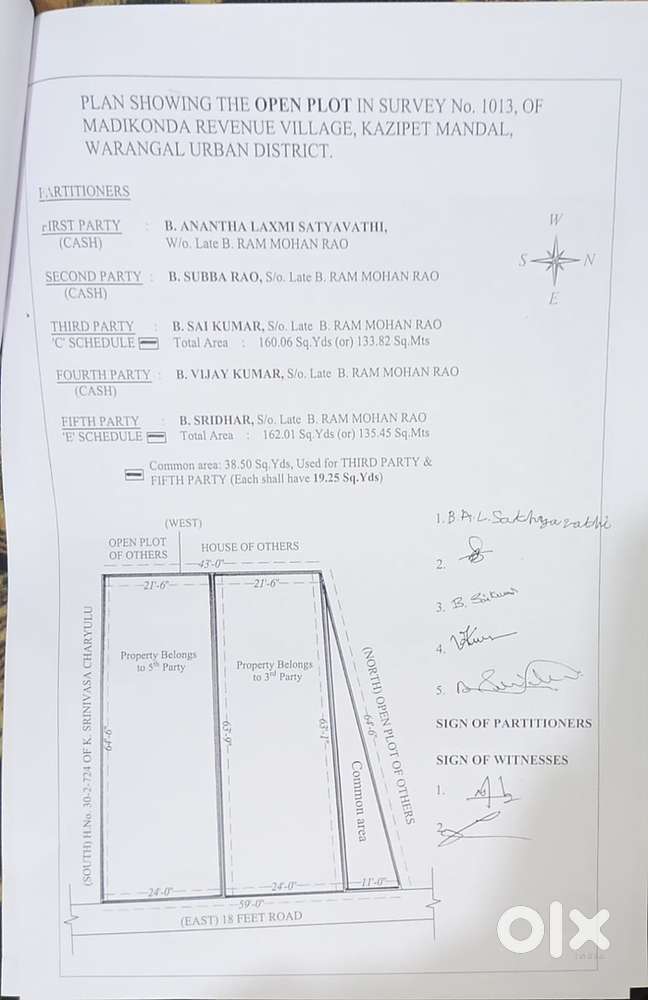 PLAN SHOWING THE OPEN PLOT IN SURVEY No. 1013, OF
MADIKONDA REVENUE VILLAGE, KAZIPET MANDAL,
WARANGAL URBAN DISTRICT.
PARTITIONERS
FIRST PARTY : B. ANANTHA LAXMI SATYAVATHI,
(CASH) W/o. Late B. RAM MOHAN RAO
SECOND PARTY : B. SUBBA RAO, S/o. Late B. RAM MOHAN RAO
(CASH)
THIRD PARTY : B. SAI KUMAR, S/o. Late B. RAM MOHAN RAO
'C' SCHEDULE Total Area : 160.06 Sq.Yds (or) 133.82 Sq.Mts
FOURTH PARTY : B. VIJAY KUMAR, S/o. Late B. RAM MOHAN RAO
(CASH)
FIFTH PARTY : B. SRIDHAR, S/o. Late B. RAM MOHAN RAO
'E' SCHEDULE Total Area : 162.01 Sq.Yds (or) 135.45 Sq.Mts
Common area: 38.50 Sq.Yds, Used for THIRD PARTY &
FIFTH PARTY (Each shall have 19.25 Sq.Yds)
W
S N
E
(WEST)
OPEN PLOT
OF OTHERS
HOUSE OF OTHERS
43'-0"
21'-6" 21'-6"
(SOUTH) H.No. 30-2-724 OF K. SRINIVASA CHARYULU
64'-6"
Property Belongs
to 5th Party
63'-6"
Property Belongs
to 3rd Party
63'-1"
Common area
64'-6"
(NORTH) OPEN PLOT OF OTHERS
24'-0" 24'-0" 11'-0"
59'-0"
(EAST) 18 FEET ROAD
1. B.A.L. Sathyavathi
2.
3. B. Saikumar
4.
5.
SIGN OF PARTITIONERS
SIGN OF WITNESSES
1.
2.
olx